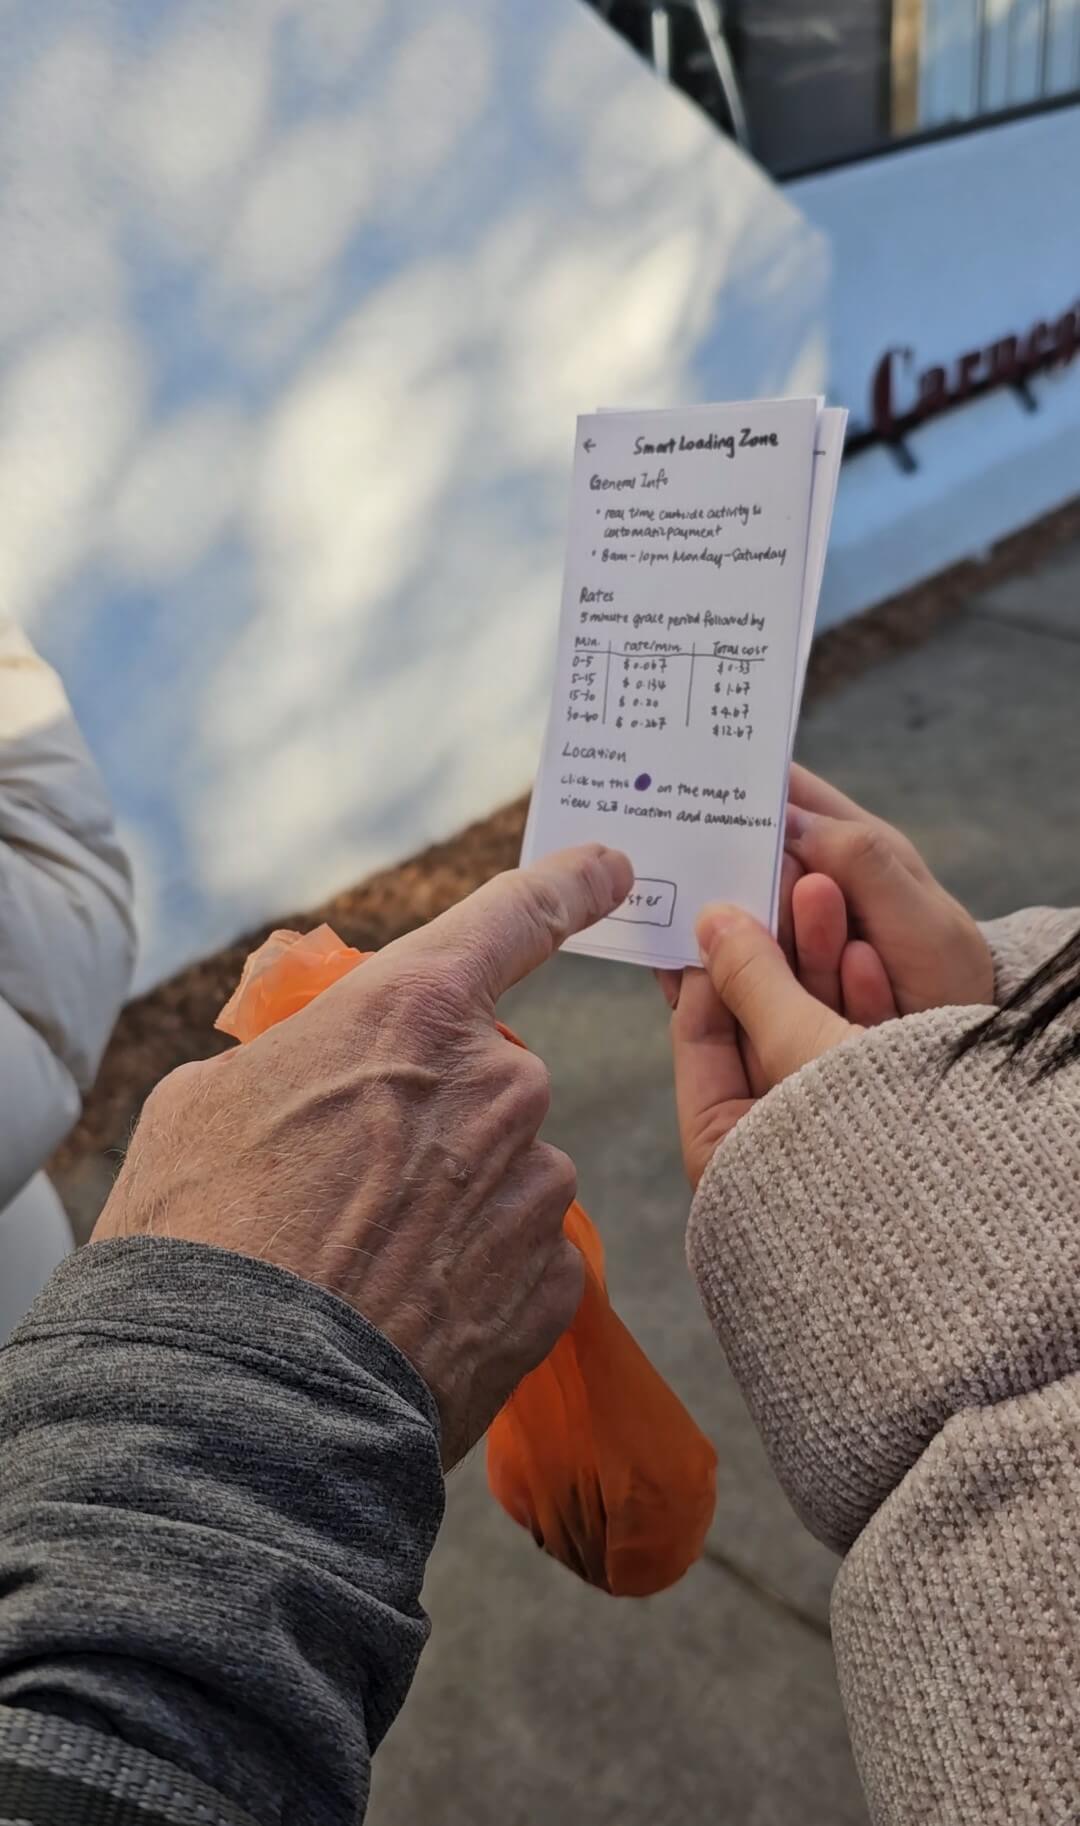 ← Smart Loading Zone
General Info
• real time curbside activity &
automatic payment
• 8am-10pm Monday-Saturday
Rates
5 minute grace period followed by
Min. rate/min Total cost
0-5 $0.067 $0.33
5-15 $0.134 $1.67
15-30 $0.20 $4.67
30-60 $0.267 $12.67
Location
click on the on the map to
view SLZ location and availabilities.
ster
Carneg